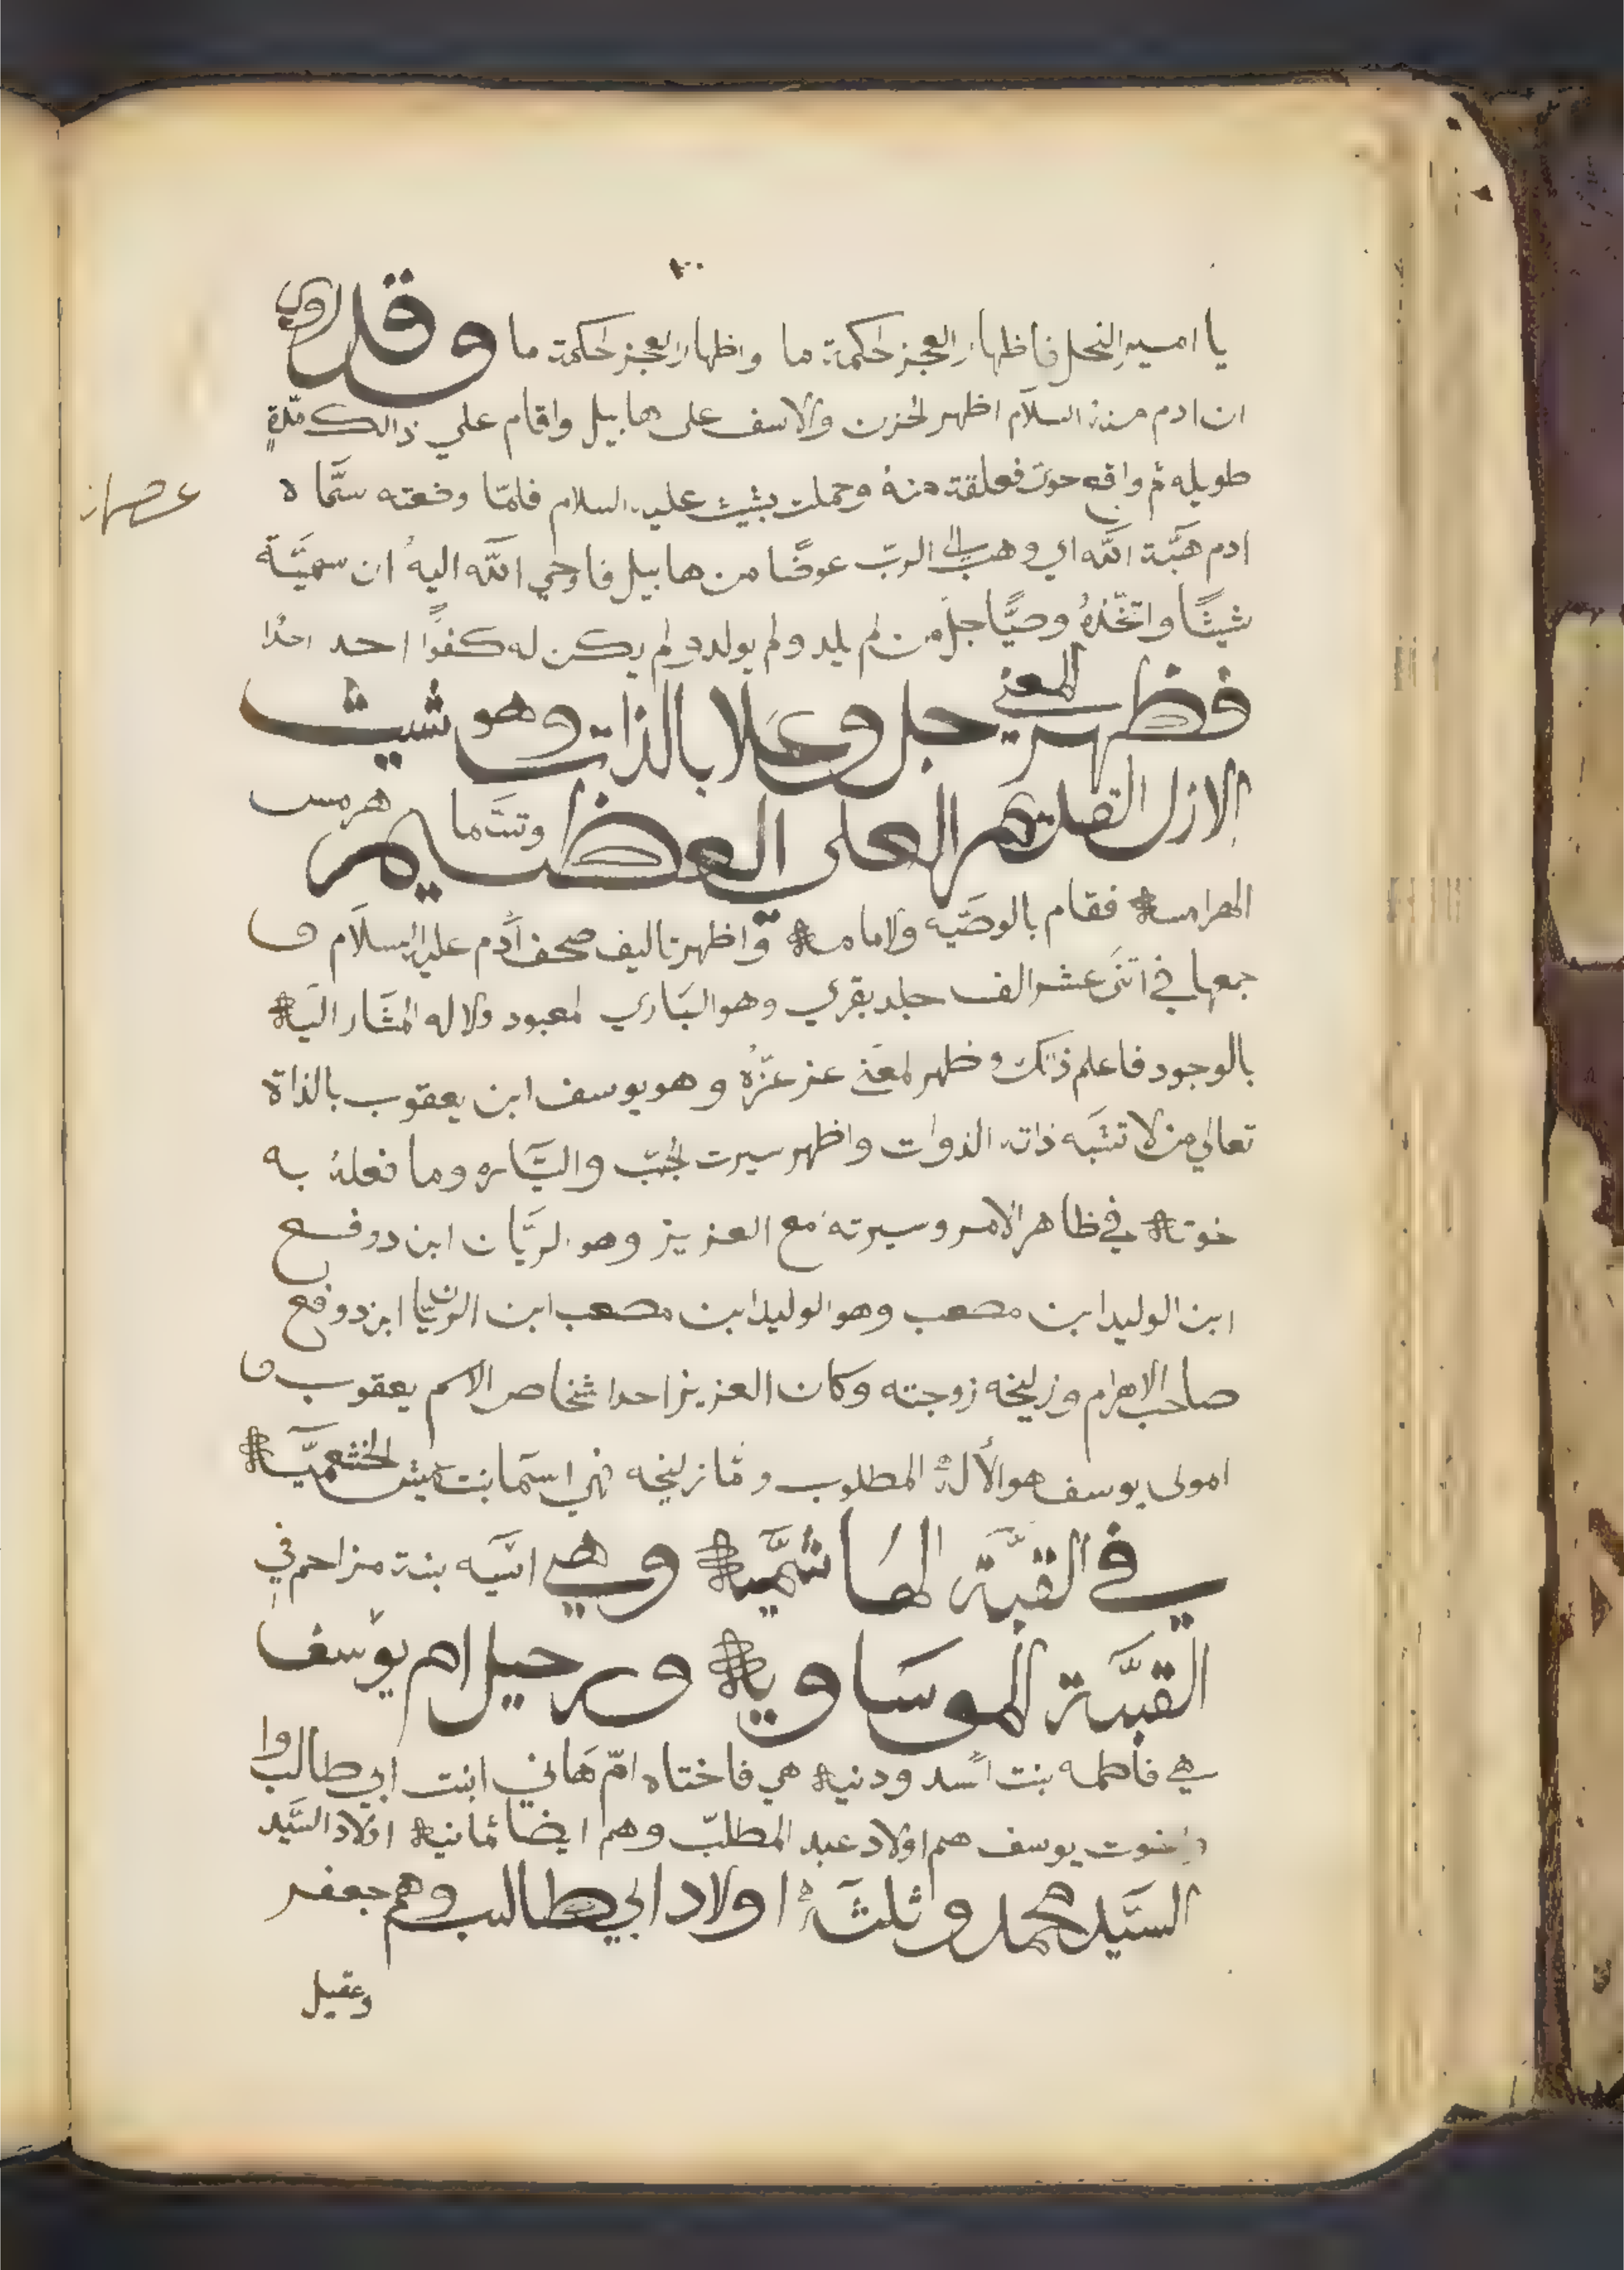 يا امير النحل فاظهار العجز لحكمة ما واظهار العجز لحكمة ما وقد روي
ان ادم منه السلام اظهر لحزن والاسف على هابيل واقام علي ذالك مدة
طويله ثم واقع حوى فعلقة منه وحملت بشيث عليه السلام فلما وضعته سماه
ادم هبة الله اي وهب لي الرب عوضا من هابيل فاوحي الله اليه ان سميه
شيثا واتخذه وصيا جل من لم يلد ولم يولد ولم يكن له كفوا احد احدا
فظهر المعنى جل وعلا بالذات وهو شيث
الازل القديم العلي العظيم وتسما هرمس
الهرامسة فقام بالوصية ولامامة واظهر تاليف صحف آدم عليه السلام و
جمعها في اثنى عشر الف جلد بقري وهو الباري لمعبود ولاله المشار اليه
بالوجود فاعلم ذلك وظهر لمعنى عز عزه وهو يوسف ابن يعقوب بالذاة
تعالي من لا تشبه ذاته الذوات واظهر سيرت لجب والسياره وما فعله به
خوته في ظاهر الامر وسيرته مع العزيز وهو لريان ابن دوفع
ابن الوليد ابن مصعب وهو الوليد ابن مصعب ابن الريان ابن دوفع
صاحب الاهرام وزليخه زوجته وكان العزيز احد اشخاص الاسم يعقوب و
امولى يوسف هو الأله المطلوب وما زليخه فهي اسما بنت عميس الخثعمية
في القبة الهاشمية وهي اسيه بنة مزاحم في
القبة الموساوية ورحيل ام يوسف
هي فاطمه بنت اسد ودنية هي فاختاه ام هاني ابنت ابي طالب وا
واخوت يوسف هم اولاد عبد المطلب وهم ايضا ثمانية اولاد السيد
السيد محمد وثلثة اولاد ابي طالب وهم جعفر
وعقيل